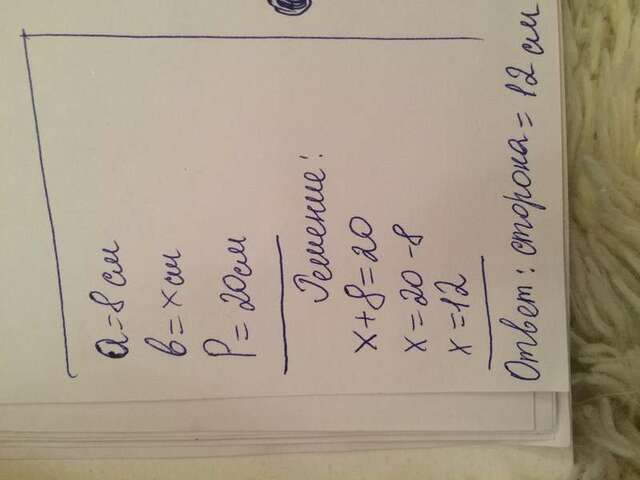 a=8 см
в=x см
P=20см
Решение:
x+8=20
x=20-8
x=12
Ответ: сторона=12 см